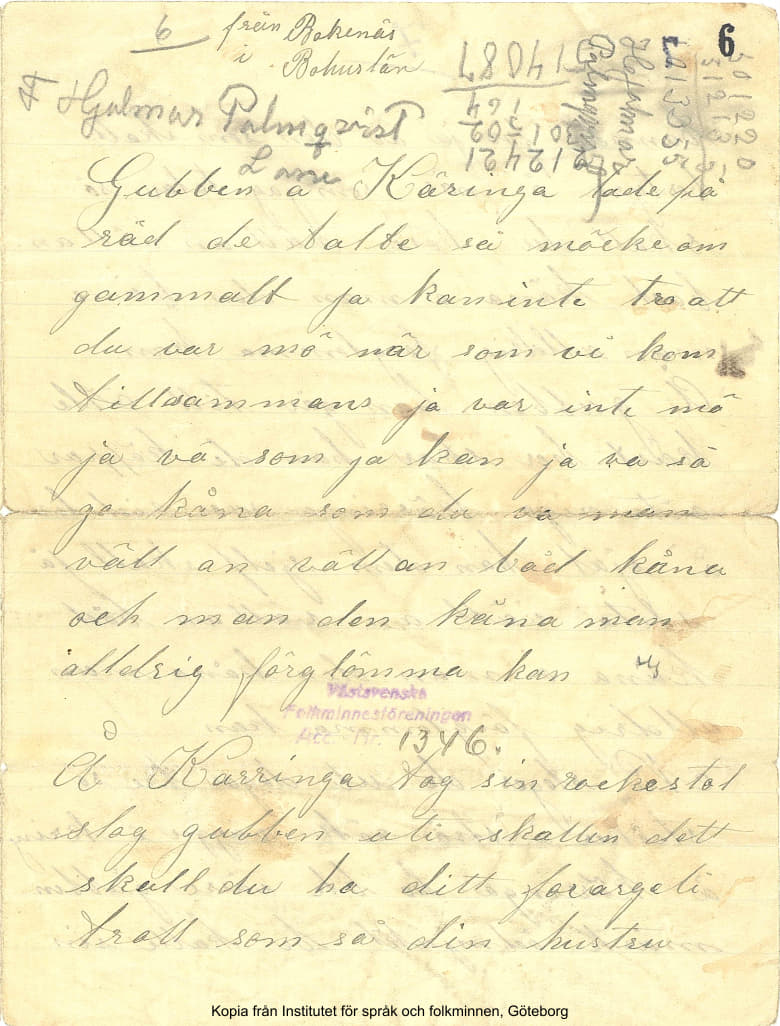 6 från Bokenäs
i Bohuslän
6
14087
164
502
01
12421
Hjalmar
Palmqvist
Hjalmar Palmqvist
Gubben å Käringa lade på
råd de talte så möcke om
gammalt ja kan inte tro att
du var mö när som vi kom
tillsammans ja var inte mö
ja vá som ja kan ja va så
go kåna som du va man
vält an vält an båd kåna
och man den kåna man
alldrig förglömma kan
Västsvenska
Folkminnesföreningen
Acc. Nr. 1346.
Å Karringa tog sin rockestol
slog gubben uti skallen dett
skall du ha ditt forargeli
troll som så din hustru
Kopia från Institutet för språk och folkminnen, Göteborg